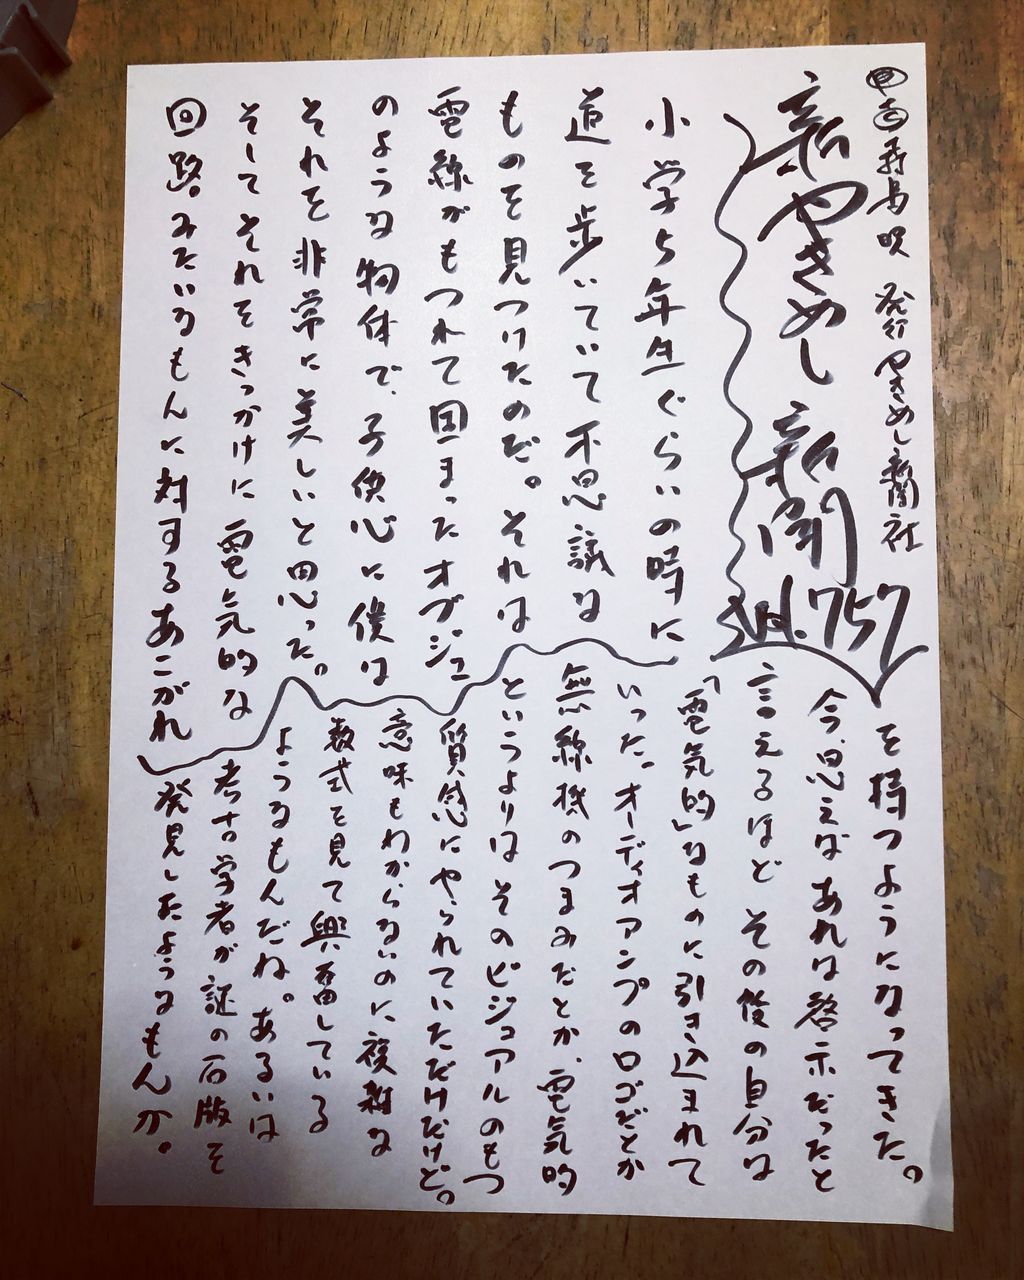 寿島 呪 発行 やきめし新聞社
新やきめし新聞
757
小学5年生ぐらいの時に
道を歩いていて不思議な
ものを見つけたのだ。それは
電線がもつれて固まったオブジェ
のような物体で、子供心に僕は
それを非常に美しいと思った。
そしてそれをきっかけに電気的な
回路。みたいなもんに対するあこがれ
を持つようになってきた。
今、思えばあれは啓示だったと
言えるほど その後の自分は
「電気的」なものに引き込まれて
いった。オーディオアンプのロゴだとか
無線機のつまみだとか、電気的
というよりはそのビジュアルのもつ
質感にやられていただけだけど。
意味もわからないのに複雑な
数式を見て興奮している
ようなもんだね。あるいは
考古学者が謎の石版を
発見したようなもんか。